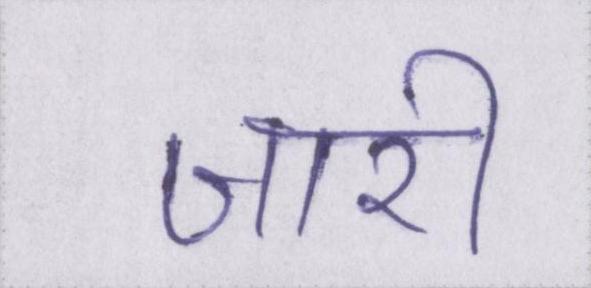 जारी